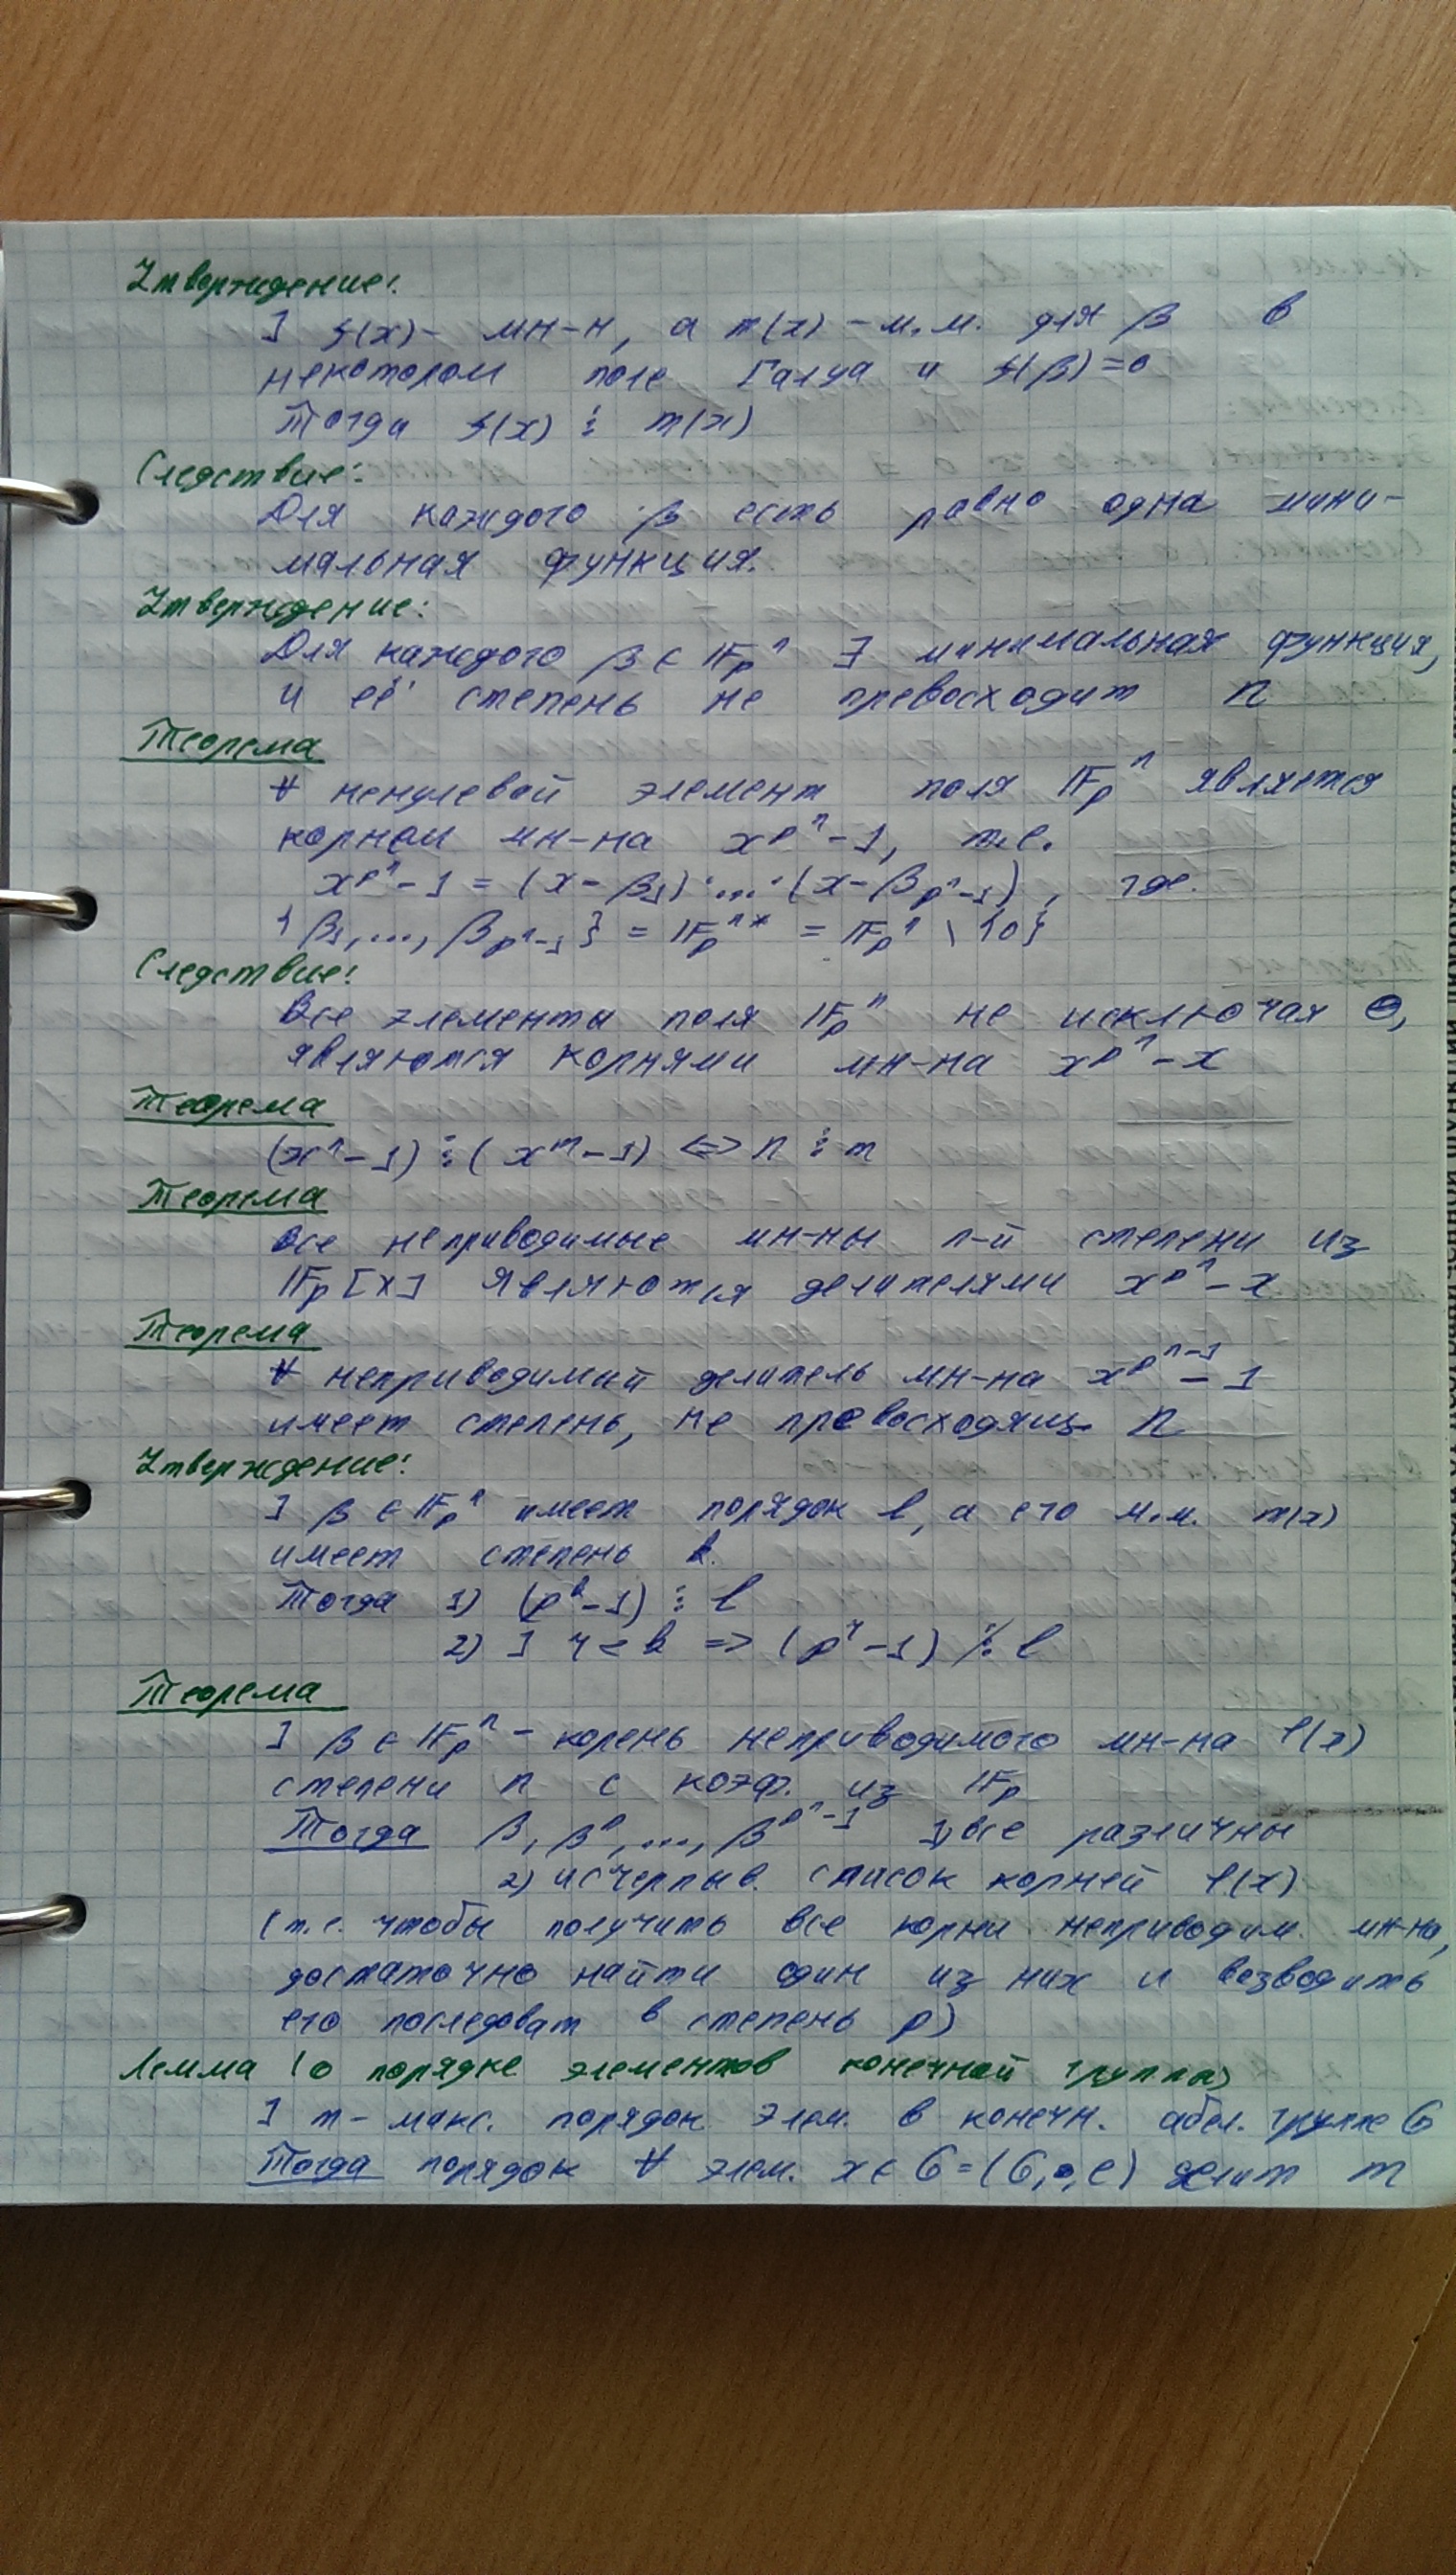 Утверждение:
] f(x) - мн-н, а m(x) - м.м. для β в
некотором поле Галуа и f(β)=0
Тогда f(x) ⋮ m(x)
Следствие:
Для каждого β есть равно одна мини-
мальная функция.
Утверждение:
Для каждого β ∈ 𝔽ₚⁿ ∃ минимальная функция,
и её степень не превосходит n
Теорема
∀ ненулевой элемент поля 𝔽ₚⁿ является
корнем мн-на x^p^n - 1, т.е.
x^p^n - 1 = (x - β₁)·...·(x - β_{p^n-1}), где
{β₁,..., β_{p^n-1}} = 𝔽ₚⁿ* = 𝔽ₚⁿ \ {0}
Следствие:
Все элементы поля 𝔽ₚⁿ не исключая 0,
являются корнями мн-на x^p^n - x
Теорема
(xⁿ - 1) ⋮ (x^m - 1) <=> n ⋮ m
Теорема
Все неприводимые мн-ны n-й степени из
𝔽ₚ[x] являются делителями x^p^n - x
Теорема
∀ неприводимый делитель мн-на x^p^{n-1} - 1
имеет степень, не превосходящ. n
Утверждение:
] β ∈ 𝔽ₚⁿ имеет порядок l, а его м.м. m(x)
имеет степень k.
Тогда 1) (p^k - 1) ⋮ l
2) ] r < k => (p^r - 1) ⋮̸ l
Теорема
] β ∈ 𝔽ₚⁿ - корень неприводимого мн-на f(x)
степени n с коэф. из 𝔽ₚ
Тогда β, β^p, ..., β^p^{n-1} 1) все различны
2) исчерпыв. список корней f(x)
(т.е. чтобы получить все корни неприводим. мн-на,
достаточно найти один из них и возводить
его последоват в степень p)
Лемма (о порядке элементов конечной группы)
] m - макс. порядок элем. в конечн. абел. группе G
Тогда порядок ∀ элем. x ∈ G = (G, •, e) делит m